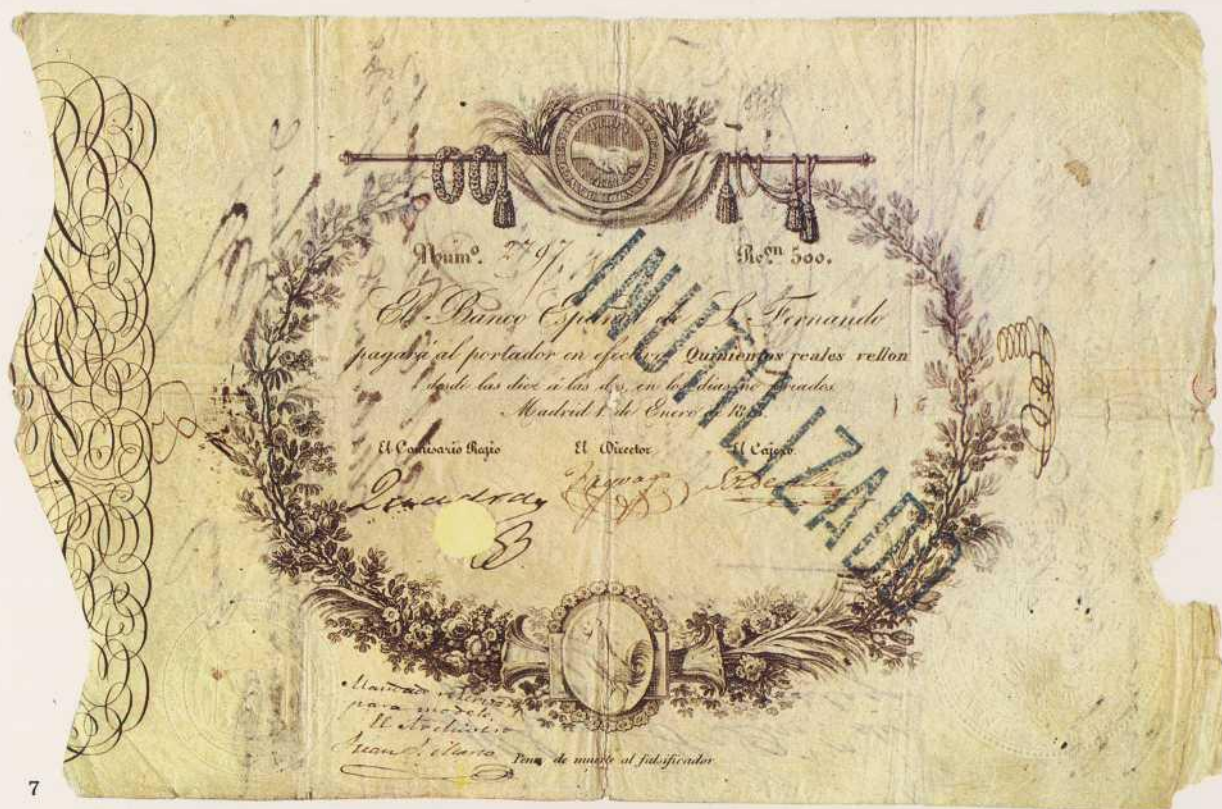 Núm.º 2797
R.ˢ vⁿ 500.
El Banco Español de S. Fernando
pagará al portador en efectivo Quinientos reales vellon
desde las diez á las dos, en los días no feriados.
Madrid 1.º de Enero de
El Comisario Regio El Director El Cajero.
Quadra
INUTILIZADO
para modelo
El Archivero
Juan
Pena de muerte al falsificador
7